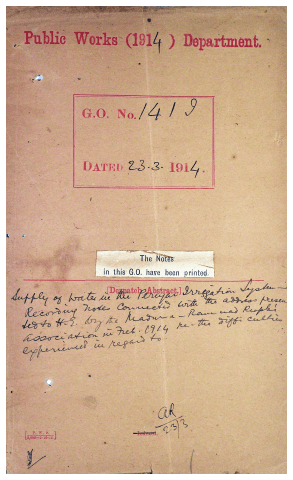 Public Works (1914) Department.
G.O. No. 1419
Dated 23-3-1914.
The Notes
in this G.O. have been printed.
[Despatch Abstract.]
Supply of water in the Periyar Irrigation System
Recording Notes connected with the address presen
ted to H.E. by the Madura-Ramnad
association in Feb. 1914 re the difficulties
experienced in regard to
AR
23/3